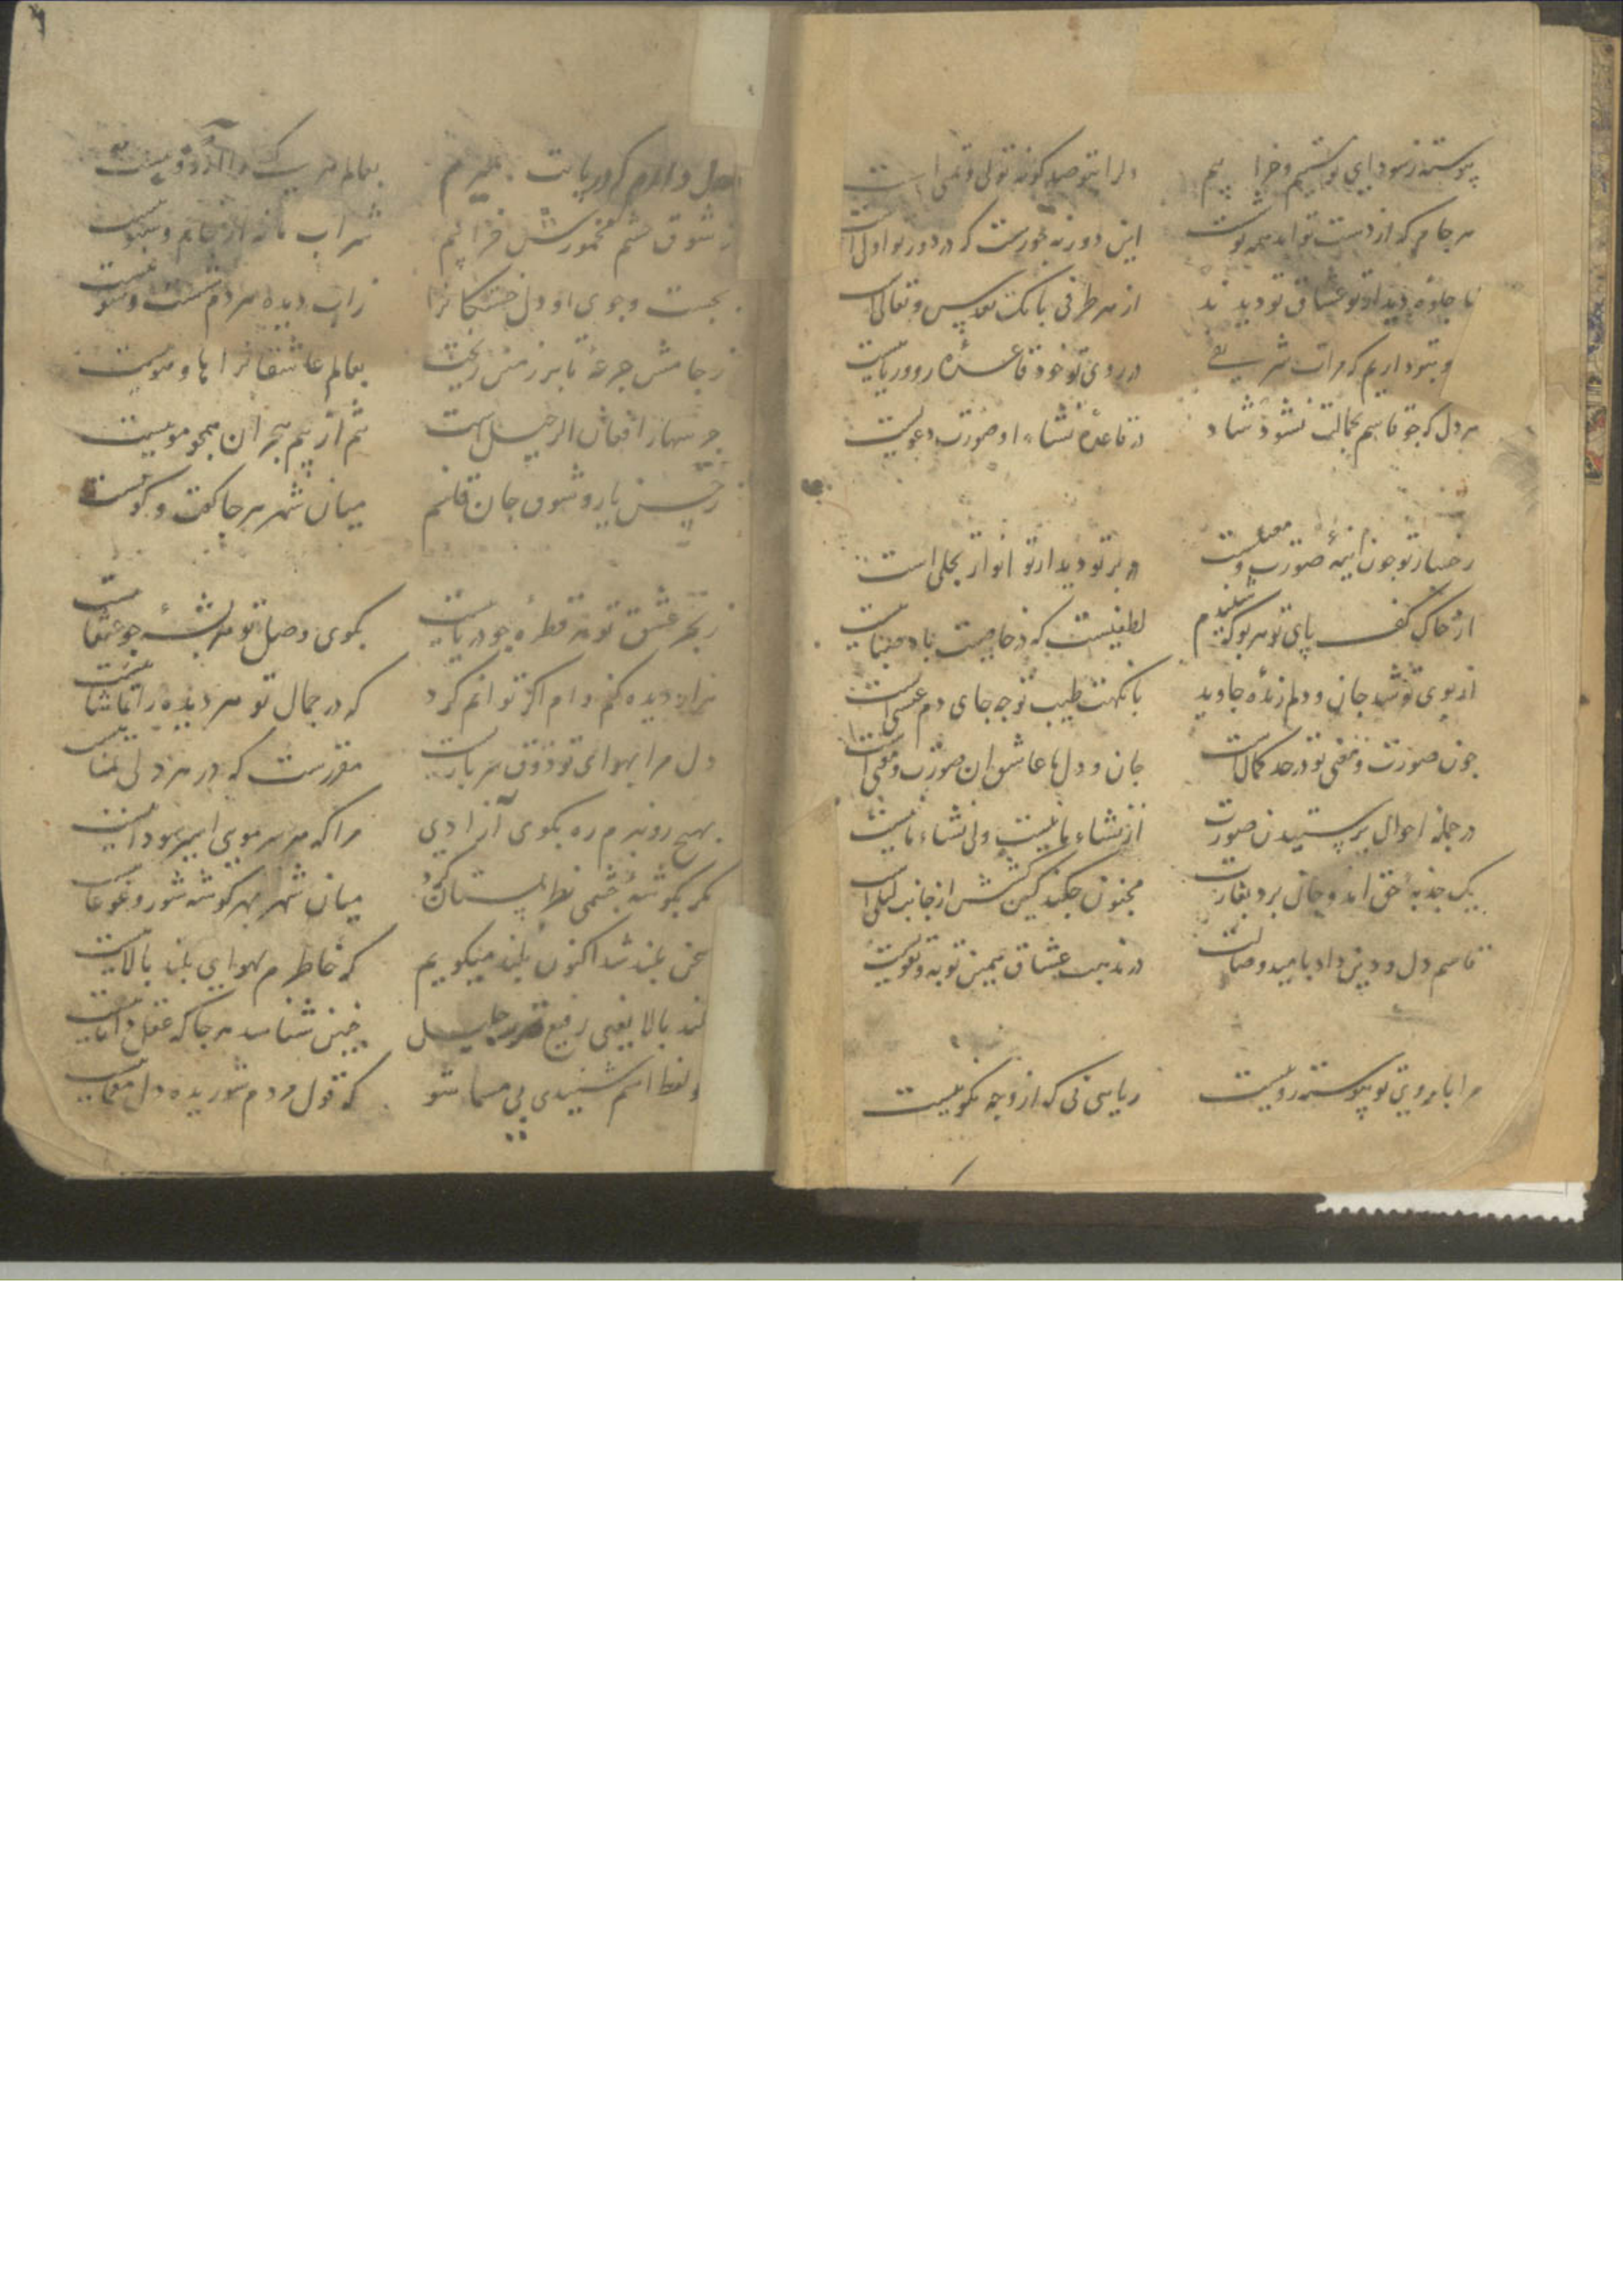 پیوسته ز سودای تو مستیم و خرابیم
دلرا بتو صد کونه تولی و تمنی است
هر جام که از دست تو اید همه نوشت
این دور نه جورست که در دور تو اولی است
تا جلوه دیدار تو عشاق تو دیدند
از هر طرفی بانک تقدیس و تعالی است
در روی تو خود قاعده روو ریا نیست
هر دل که جو قاسم بجمالت نشود شاد
در قاعده نشاء او صورت دعویست
رخسار تو جون اینه صورت و معنیست
در پرتو دیدار تو انوار تجلی است
از خاک کف پای تو هر بو که شنیدم
لطفیست که در خاصیت باد صبا نیست
از بوی تو شد جان و دلم زنده جاوید
با نکهت طیب تو جه جای دم عیسی است
جون صورت و معنی تو در حد کمالست
جان و دل ما عاشق ان صورت و معنی است
در جمله احوال پرستیدن صورت
از نشاء ما نیست ولی نشاء ما نیست
یک جذبه حق امد و جان برد بغارت
مجنون جکند کین کشش از جانب لیلی است
قاسم دل و دین داد بامید وصالت
در مذهب عشاق همین توبه و تقویست
مرا با ابروی تو پیوسته رویست
ریاسی نی که از وجه نکوییست
بعالم هر یک را آرزوییست
ز شوق چشم مخمورش خرابیم
شراب ما نه از جام و سبوییست
بجست و جوی او دل خستکانرا
ز اب دیده هر دم شست و شوییست
ز جامش جرعه تا بر زمین ریخت
بعالم عاشقانرا های و هوییست
جرسها را فغان الرحیل است
تنم از بیم هجران همجو موییست
ز حسن یار و شوق جان قاسم
میان شهر هر جا کفت و کوییست
ز بحر عشق تو هر قطره جو دریاییست
بکوی وصل تو هر پشه جو عنقاییست
هزار دیده کنم وام اکر توانم کرد
که در جمال تو هر دیده را تماشاییست
دل مرا بهوای تو ذوق هر باریست
مقررست که در هر دلی تمناییست
بهیج رو نبرم ره بکوی آزادی
مرا که هر سر موی اسیر سوداییست
مکر بکوشه جشمی نظر بمستان کرد
میان شهر بهر کوشه شور و غوغاییست
سخن بلند شد اکنون بلند میکویم
که خاطرم بهوای بلند بالاییست
بلند بالا یعنی رفیع قدر جلیل
جنین شناسد هر جا که عقل داناییست
ز لفظ اسم شنیدی پی مسما شو
که قول مردم شوریده دل معماییست